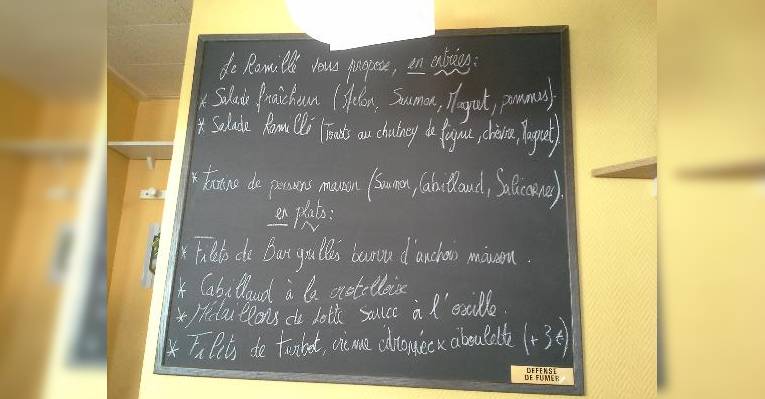 Le Ramillé vous propose, en entrées:
* Salade fraîcheur (Melon, Saumon, Magret, pommes).
* Salade Ramillé (Toasts au chutney de figue, chèvre, Magret).
* Terrine de poissons maison (Saumon, Cabillaud, Salicornes).
en plats:
* Filets de Bar grillés beurre d'anchois maison.
* Cabillaud à la crotelloise
* Médaillons de lotte sauce à l'oseille.
* Filets de turbot, crème citronnée x ciboulette (+ 3 €)
DEFENSE
DE FUMER